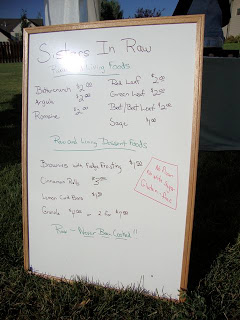 Sisters In Raw
Raw and Living Foods
Buttercrunch $2.00
Arugula $2.00
Romaine $2.00
Red Leaf $2.00
Green Leaf $2.00
Beet/Beet Leaf $2.00
Sage $1.00
Raw and Living Dessert Foods
Brownies with Fudge Frosting $1.50
Cinnamon Rolls
Lemon Coco Bars
Granola or 2 for
No Flour
no white sugar
Gluten-Free
Raw - Never Been Cooked!!